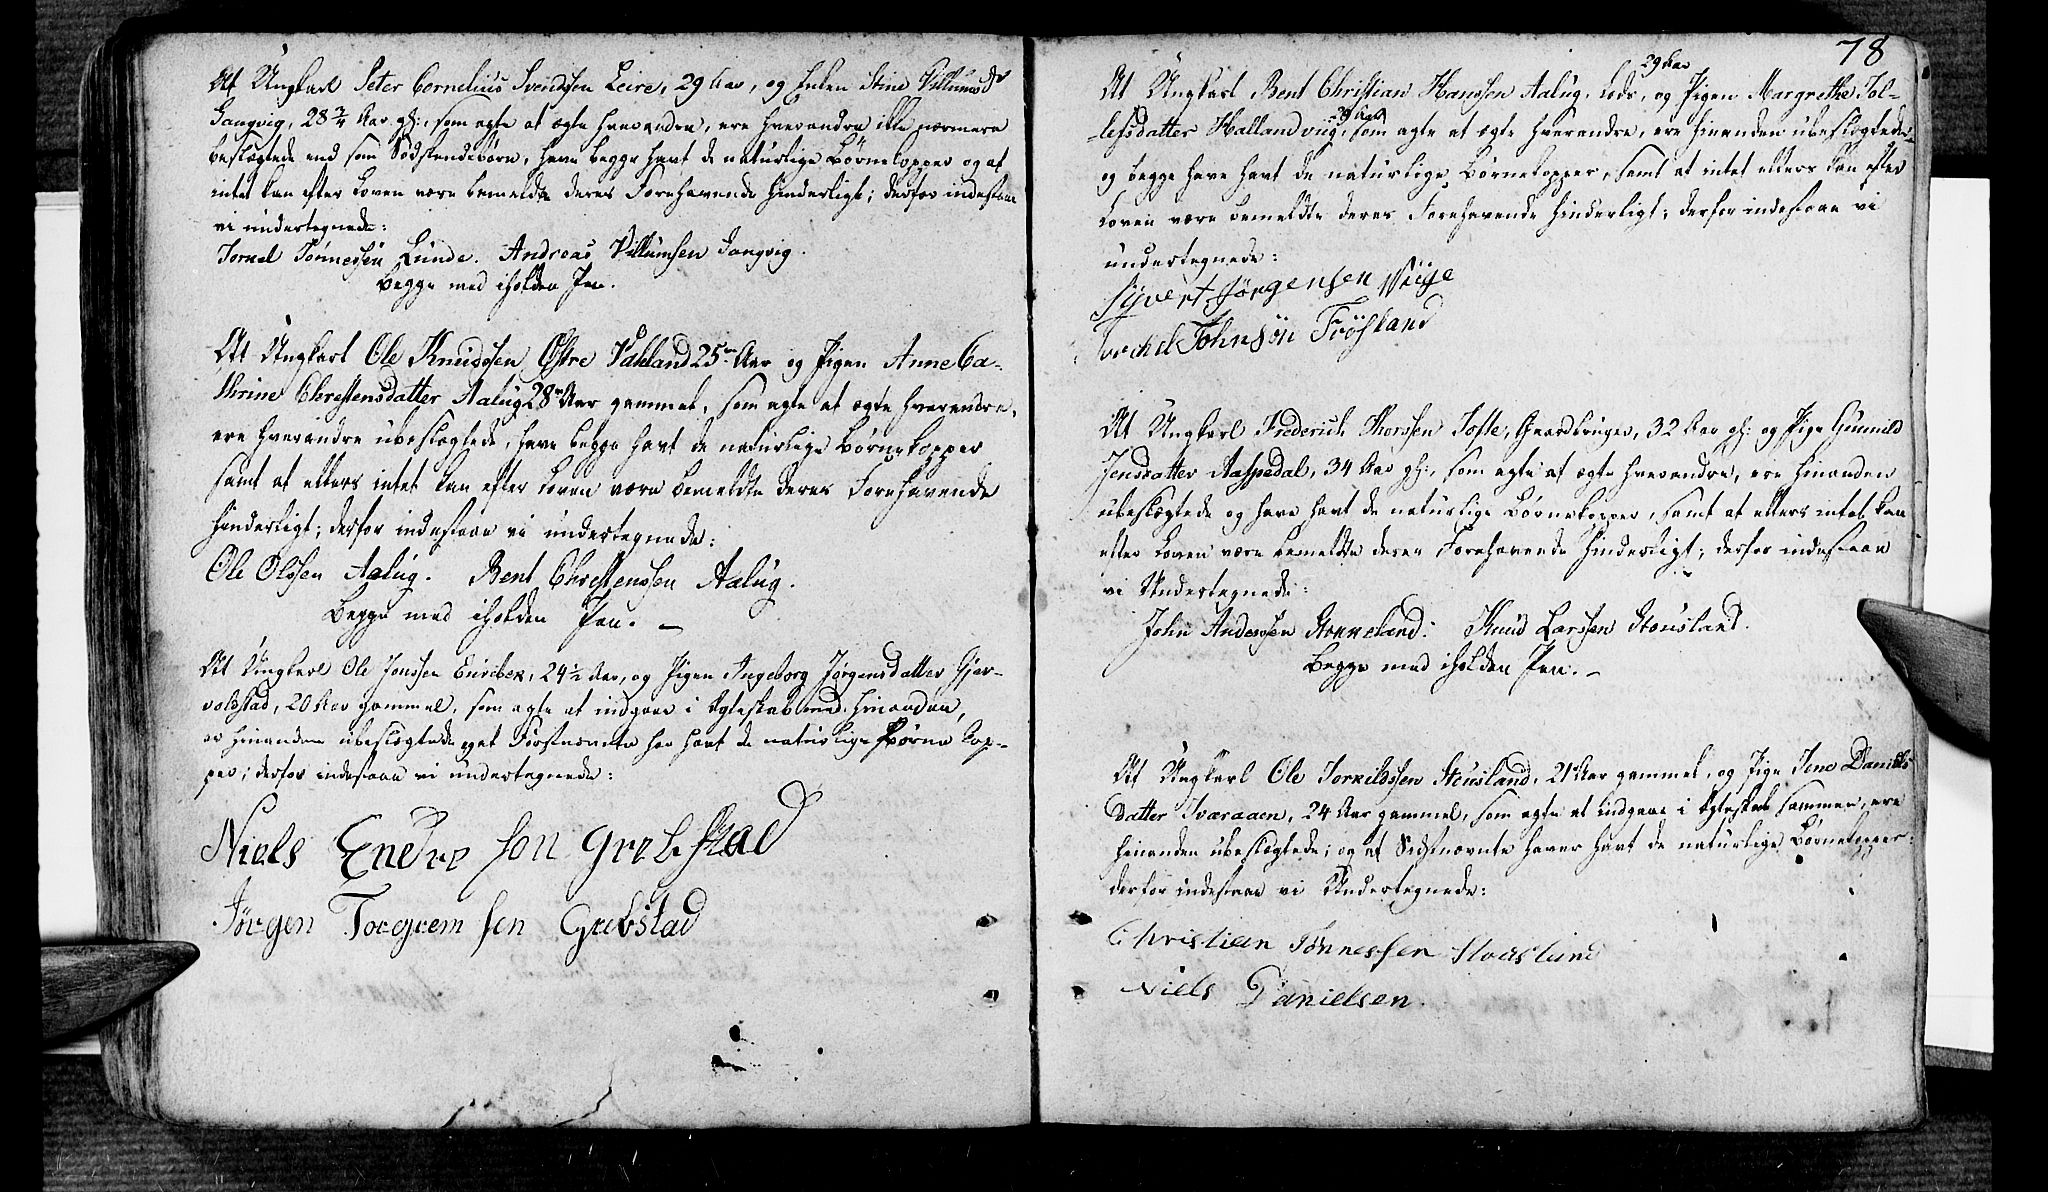 At Ungkarl Peter Cornelius Svendsen Leire, 29 Aar, og Enken Stine Villumsdr
Sangvig, 28 3/4 Aar gl:, som agte at ægte hverandre, ere hverandre ikke nærmere
beslægtede end som Sødskendebørn, have begge havt de naturlige Børnekopper og at
intet kan efter Loven være bemeldte deres Forehavende hinderligt; derfor indestaae
vi undertegnede:
Tørkel Tønnessen Lunde. Andreas Villumsen Sangvig.
begge med iholden Pen.
At Ungkarl Ole Knudssen Østre Vatland 25 Aar og Pigen Anne Ca-
thrine Chrestensdatter Aalug 28 Aar gammel, som agte at ægte hverandre,
ere hverandre ubeslægtede, have begge havt de naturlige Børnekopper
samt at ellers intet kan efter Loven være bemeldte deres Forehavende
hinderligt; derfor indestaae vi undertegnede:
Ole Olssen Aalug. Bent Chrestenssen Aalug.
begge med iholden Pen. —
At Ungkarl Ole Jonssen 24 1/2 Aar, og Pigen Ingeborg Jørgensdatter Gjer-
voldstad, 20 Aar gammel, som agte at indgaae i Ægteskab med hinanden,
er hinanden ubeslægtede og at Førstnævnte har havt de naturlige Børnekop-
per; derfor indestaae vi undertegnede:
Niels Endre son Grebstad
Jörgen Torgrem sen Grebstad
78
29 Aar
At Ungkarl Bent Christian Hanssen Aalug, Lods, og Pigen Margrethe Tol-
29 Aar
lefsdatter Hallandviig, som agte at ægte hverandre, ere hinanden ubeslægtede
og begge have havt de naturlige Børnekopper, samt at intet ellers kan efter
Loven være bemeldte deres Forehavende hinderligt; derfor indestaae vi
undertegnede:
Sÿvert Jörgensen Wiige
Torckel Johnsön Fröstand
At Ungkarl Frederich Thorssen Tofte, Gaardbruger, 32 Aar gl: og Pige Gunnild
Jensdatter Aaspedal, 34 Aar gl:, som agte at ægte hverandre, ere hinanden
ubeslægtede og have havt de naturlige Børnekopper, samt at ellers intet kan
efter Loven være bemeldte deres Forehavende hinderligt; derfor indestaae
vi Undertegnede:
John Anderssen Stokkeland. Knud Larssen Stousland.
begge med iholden Pen. —
At Ungkarl Ole Torkildssen Stousland, 21 Aar gammel, og Pige Jene Daniels
datter Tveraaen, 24 Aar gammel, som agte at indgaae i Ægteskab sammen, ere
hinanden ubeslægtede; og at Sidstnævnte haver havt de naturlige Børnekopper:
derfor indestaae vi Undertegnede:
Christien Tönnessen Stousland
Niels Danielsen.